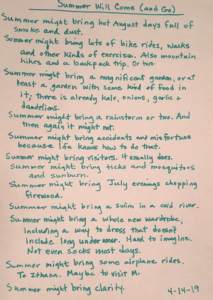 Summer Will Come (and Go)
Summer might bring hot August days full of
smoke and dust.
Summer might bring lots of bike rides, walks
and other kinds of exercise. Also mountain
hikes and a backpack trip. Or two.
Summer might bring a magnificent garden, or at
least a garden with some kind of food in
it; there is already kale, onions, garlic &
dandelions.
Summer might bring a rainstorm or two. And
then again it might not.
Summer might bring accidents and misfortune
because life knows how to do that.
Summer might bring visitors. It usually does.
Summer might bring ticks and mosquitos
and sunburn.
Summer might bring July evenings chopping
firewood.
Summer might bring a swim in a cold river.
Summer might bring a whole new wardrobe,
including a way to dress that doesn't
include long underwear. Hard to imagine.
Not even socks most days.
Summer might bring some airplane rides.
To Ithaca. Maybe to visit M.
Summer might bring clarity. 4-14-19